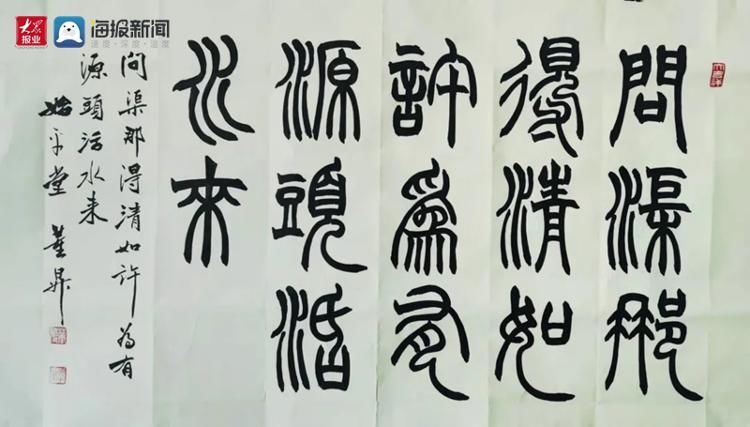 大众报业
海报新闻
速度·深度·温度
問渠那
得清如
許為有
源頭活
水來
问渠那得清如许为有
源頭活水来
始平堂 董